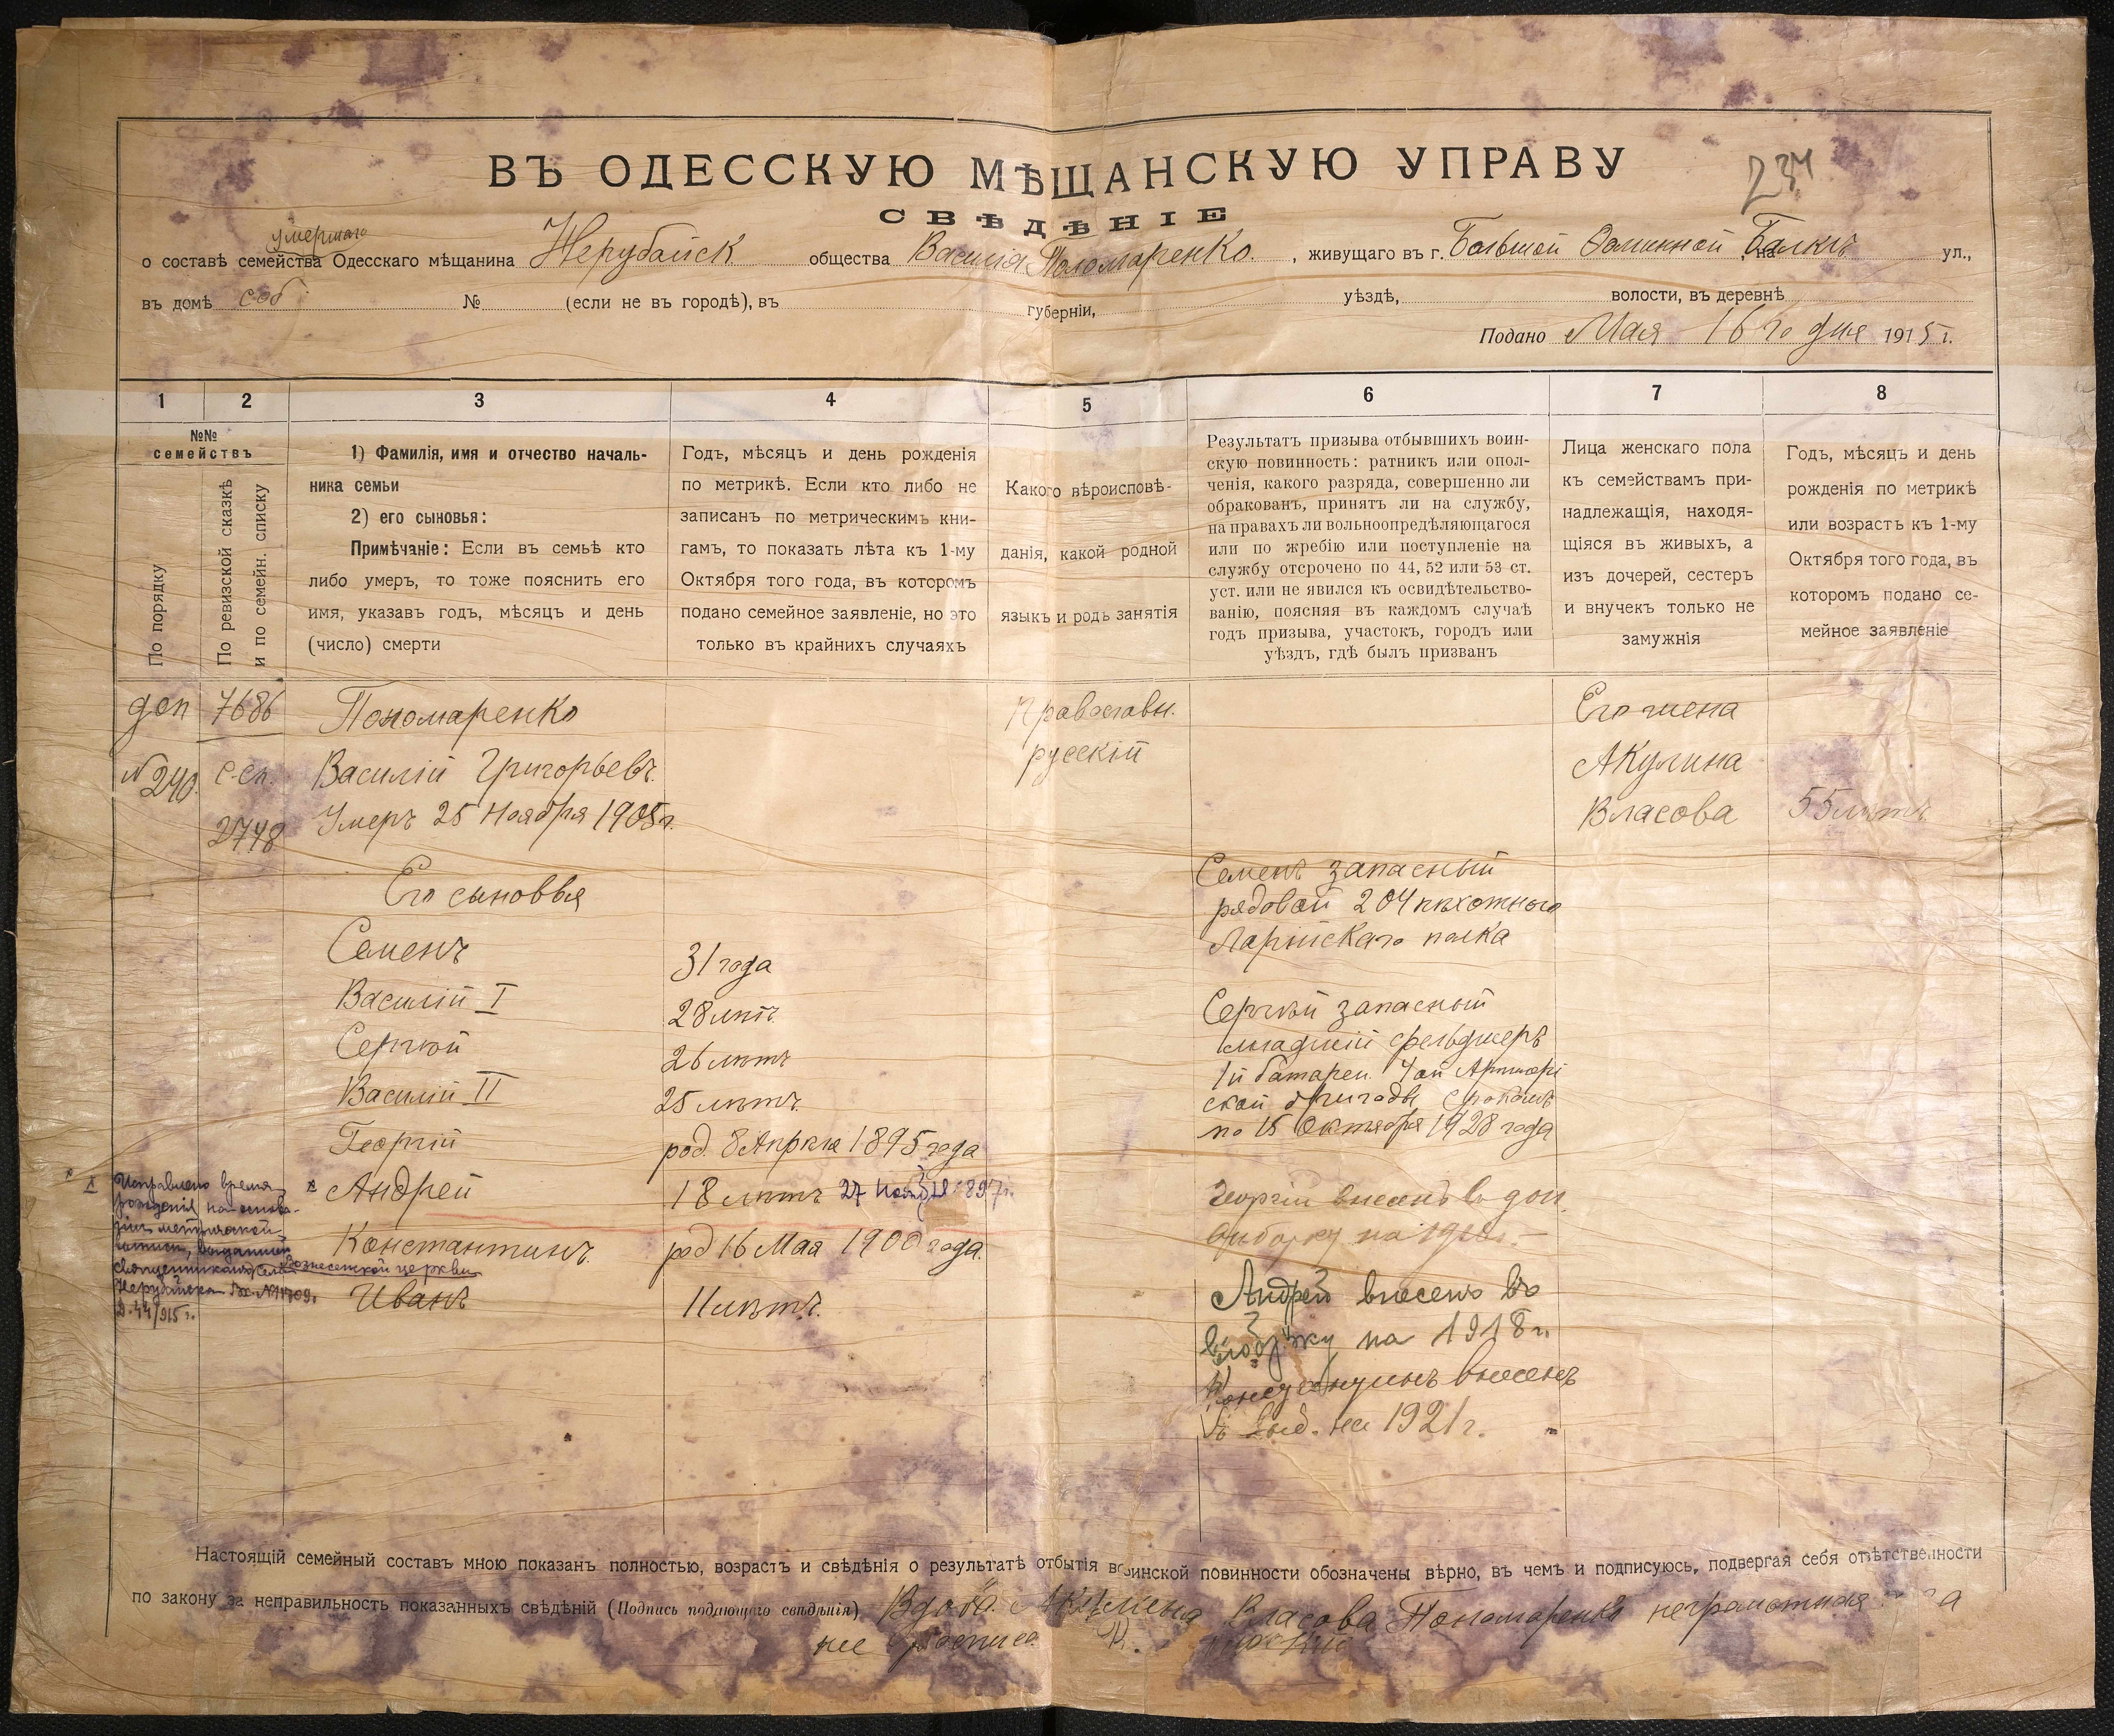 ВЪ ОДЕССКУЮ МѢЩАНСКУЮ УПРАВУ
234
СВѢДѢНІЕ
умершаго
о составѣ семейства Одесскаго мѣщанина Нерубайск общества Василія Пономаренко, живущаго въ г. Большой на Балкѣ ул.,
въ домѣ соб № (если не въ городѣ), въ губерніи, уѣздѣ, волости, въ деревнѣ
Подано Мая 16 го дня 1915 г.
1 2 3 4 5 6 7 8
№№ семействъ
По порядку
По ревизской сказкѣ и по семейн. списку
1) Фамилія, имя и отчество началь-
ника семьи
2) его сыновья:
Примѣчаніе: Если въ семьѣ кто
либо умеръ, то тоже пояснить его
имя, указавъ годъ, мѣсяцъ и день
(число) смерти
Годъ, мѣсяцъ и день рожденія
по метрикѣ. Если кто либо не
записанъ по метрическимъ кни-
гамъ, то показать лѣта къ 1-му
Октября того года, въ которомъ
подано семейное заявленіе, но это
только въ крайнихъ случаяхъ
Какого вѣроисповѣ-
данія, какой родной
языкъ и родъ занятія
Результатъ призыва отбывшихъ воин-
скую повинность: ратникъ или опол-
ченія, какого разряда, совершенно ли
обракованъ, принятъ ли на службу,
на правахъ ли вольноопредѣляющагося
или по жребію или поступленіе на
службу отсрочено по 44, 52 или 53 ст.
уст. или не явился къ освидѣтельство-
ванію, поясняя въ каждомъ случаѣ
годъ призыва, участокъ, городъ или
уѣздъ, гдѣ былъ призванъ
Лица женскаго пола
къ семействамъ при-
надлежащія, находя-
щіяся въ живыхъ, а
изъ дочерей, сестеръ
и внучекъ только не
замужнія
Годъ, мѣсяцъ и день
рожденія по метрикѣ
или возрастъ къ 1-му
Октября того года, въ
которомъ подано се-
мейное заявленіе
доп
№ 240.
7686
с.сп.
2748
Пономаренко
Василій Григорьевъ.
Умеръ 25 Ноября 1905г.
Его сыновья
Семенъ 31 года
Василій I 28 лѣтъ
Сергѣй 26 лѣтъ
Василій II 25 лѣтъ
Георгій род. 8 Апрѣля 1895 года
х Андрей 18 лѣтъ 27 Ноября 1897г.
Константинъ. род 16 Мая 1900 года.
Иванъ 11 лѣтъ.
х Исправлено время
рожденія на основа-
ніи метрической
выписи, выданной
священникомъ Вознесенской церкви
Нерубайска Вх. №11709.
Д. 44/915 г.
Православн.
русскій
Семенъ запасный
рядовой 204 пѣхотнаго
полка
Сергѣй запасный
младшій фельдшеръ
1й батареи 4 ой
ской бригады срокомъ
по 15 Октября 1928 года
Георгій внесенъ в доп.
выборку на
Андрей внесенъ въ
выборку на 1918 г.
Константинъ внесенъ
въ выб. на 1921 г.
Его жена
Акулина
Власова 55 лѣтъ
Настоящій семейный составъ мною показанъ полностью, возрастъ и свѣдѣнія о результатѣ отбытія воинской повинности обозначены вѣрно, въ чемъ и подписуюсь, подвергая себя отвѣтственности
по закону за неправильность показанныхъ свѣдѣній (Подпись подающаго свѣдѣнія) Вдова Акулина Власова Пономаренко неграмотная